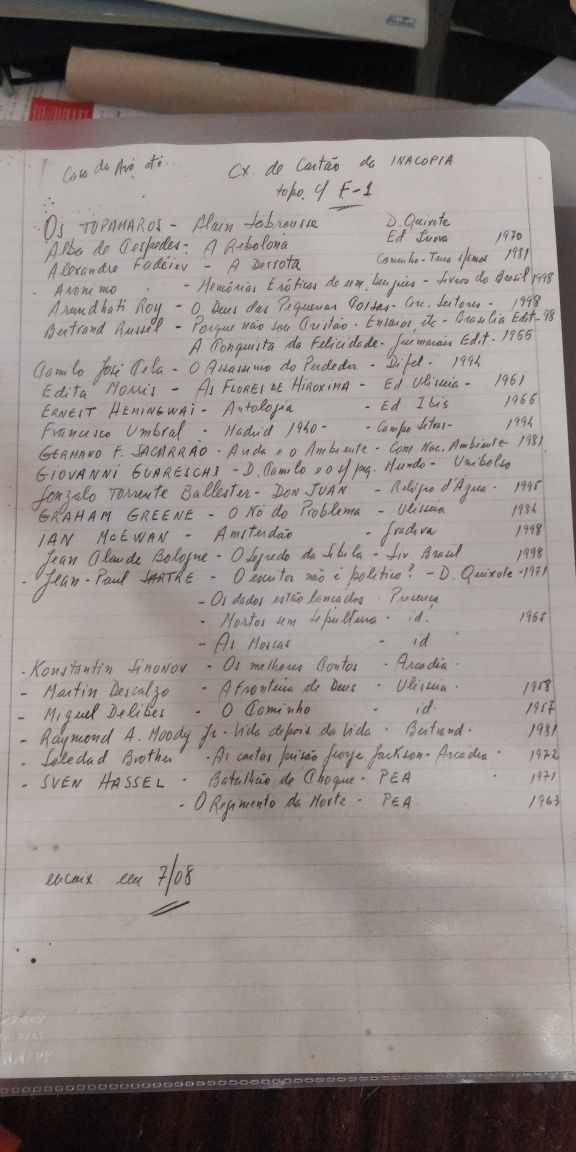 Casa da Avó
Cx. de Cartão da INACOPIA
topo. c/ F-1
OS TUPAMAROS - Alain Labrousse D. Quixote
Alba de Cespedes - A Rebolona Ed Inova 1970
Alexandre Fadéiev - A Derrota Caminho - Terra 1981
Anonimo - Memórias Eróticas de um burguês - Livros do Brasil 1998
Arundhati Roy - O Deus das Pequenas Coisas - Circ. Leitores - 1998
Bertrand Russel - Porque não sou Cristão. Ensaios, etc - Brasilia Edit - 98
A Conquista da Felicidade - Guimarães Edit - 1966
Camilo José Cela - O Assassino do Perdedor - Difel - 1994
Edita Morris - AS FLORES DE HIROXIMA - Ed Ulisseia - 1961
ERNEST HEMINGWAI - Antologia - Ed Ibis 1966
Francisco Umbral - Madrid 1940 - - Campo Letras - 1994
GERMANO F. SACARRÃO - A vida e o Ambiente - Com Nac. Ambiente - 1981
GIOVANNI GUARESCHI - D. Camilo e o s/ peq. Mundo - Unibolso
Gonzalo Torrente Ballester - DON JUAN - Relógio d'Água - 1995
GRAHAM GREENE - O Nó do Problema - Ulisseia 1984
IAN McEWAN - Amsterdão - Gradiva 1998
Jean Claude Bologne - O Segredo da Sibila - Liv Brasil 1998
- Jean-Paul SARTRE - O escritor não é politico? - D. Quixote - 1971
- Os dados estão lançados - Presença
- Mortos sem sepultura - id. 1965
- As Moscas - id
- Konstantin Simonov - Os melhores Contos - Arcadia -
- Martin Descalzo - A Fronteira de Deus - Ulisseia - 1958
- Miguel Delibes - O Caminho - id. 1957
- Raymond A. Moody Jr - Vida depois da Vida - Bertrand - 1981
- Soledad Brother - As cartas prisão George Jackson - Arcadia - 1972
- SVEN HASSEL - Batalhão de Choque - PEA - 1971
- O Regimento da Morte - PEA 1963
encaix em 7/08